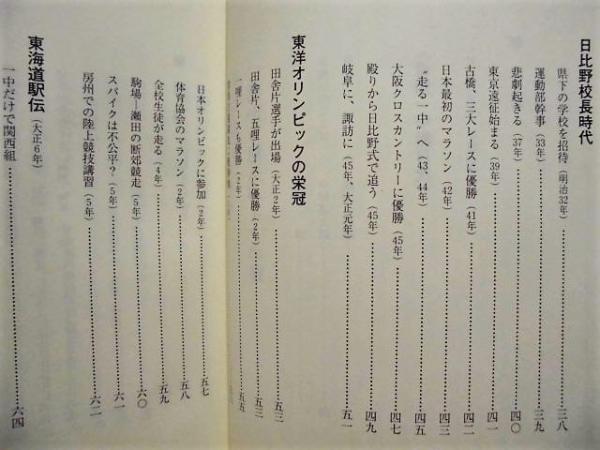 日比野校長時代
県下の学校を招待(明治32年)……三八
運動部幹事(33年)……三九
悲劇起きる(37年)……四〇
東京遠征始まる(39年)……四一
古橋、三大レースに優勝(41年)……四二
日本最初のマラソン(42年)……四三
"走る一中"へ(43、44年)……四五
大阪クロスカントリーに優勝(45年)……四七
殿りから日比野式で追う(45年)……四九
岐阜に、諏訪に(45年、大正元年)……五一
東洋オリンピックの栄冠
田舎片選手が出場(大正2年)……五三
田舎片、五哩レースに優勝(2年)……五三
一哩レースも優勝(2年)……五五
日本オリンピックに参加(2年)……五七
体育協会のマラソン(2年)……五八
全校生徒が走る(4年)……五九
駒場―瀬田の断郊競走(5年)……六〇
スパイクは不公平?(5年)……六一
房州での陸上競技講習(5年)……六二
東海道駅伝(大正6年)
一中だけで関西組……六四